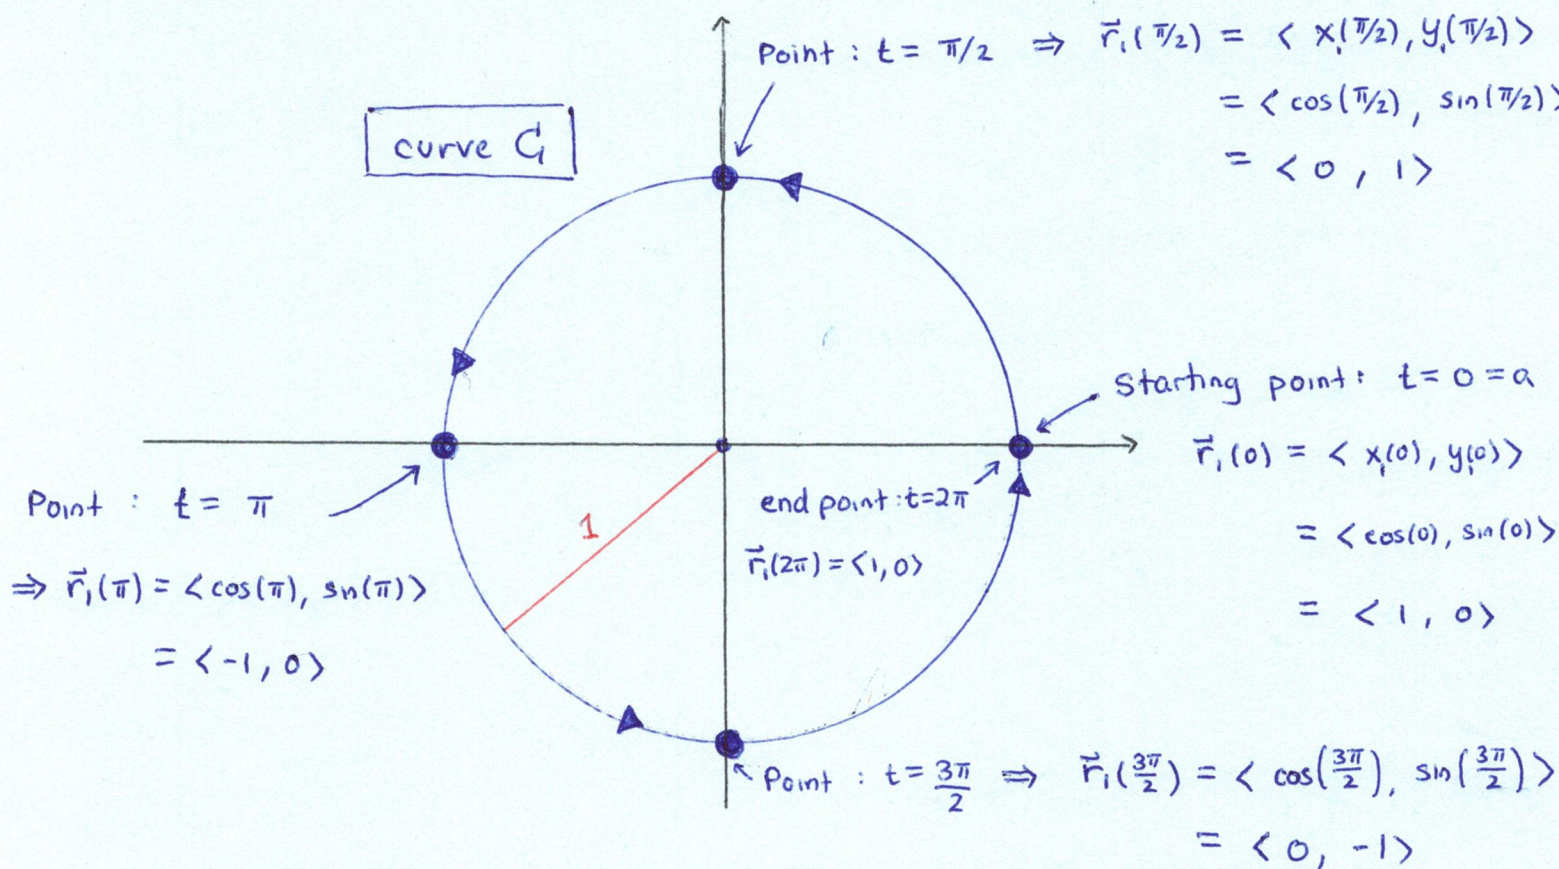 Point : t = π/2 ⇒ r⃗₁(π/2) = < x₁(π/2), y₁(π/2) >
= < cos(π/2), sin(π/2) >
= < 0 , 1 >
curve C₁
Starting point: t = 0 = a
r⃗₁(0) = < x₁(0), y₁(0) >
= < cos(0), sin(0) >
= < 1 , 0 >
end point : t = 2π
r⃗₁(2π) = < 1, 0 >
1
Point : t = π
⇒ r⃗₁(π) = < cos(π), sin(π) >
= < -1, 0 >
Point : t = 3π/2 ⇒ r⃗₁(3π/2) = < cos(3π/2), sin(3π/2) >
= < 0, -1 >